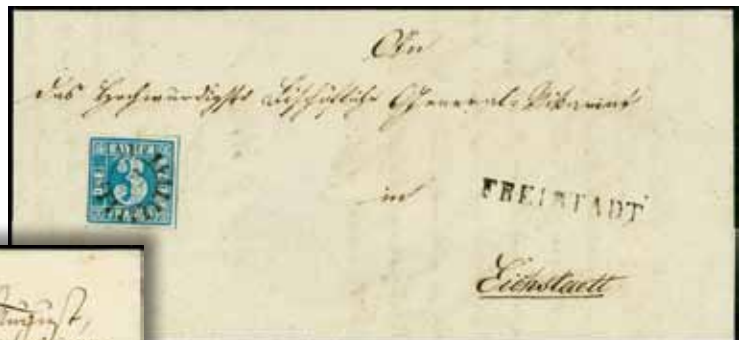 An
das Hochwürdigste Bischöfliche General-Vikariat
3
in
FREISTADT
Eichstaett
August,